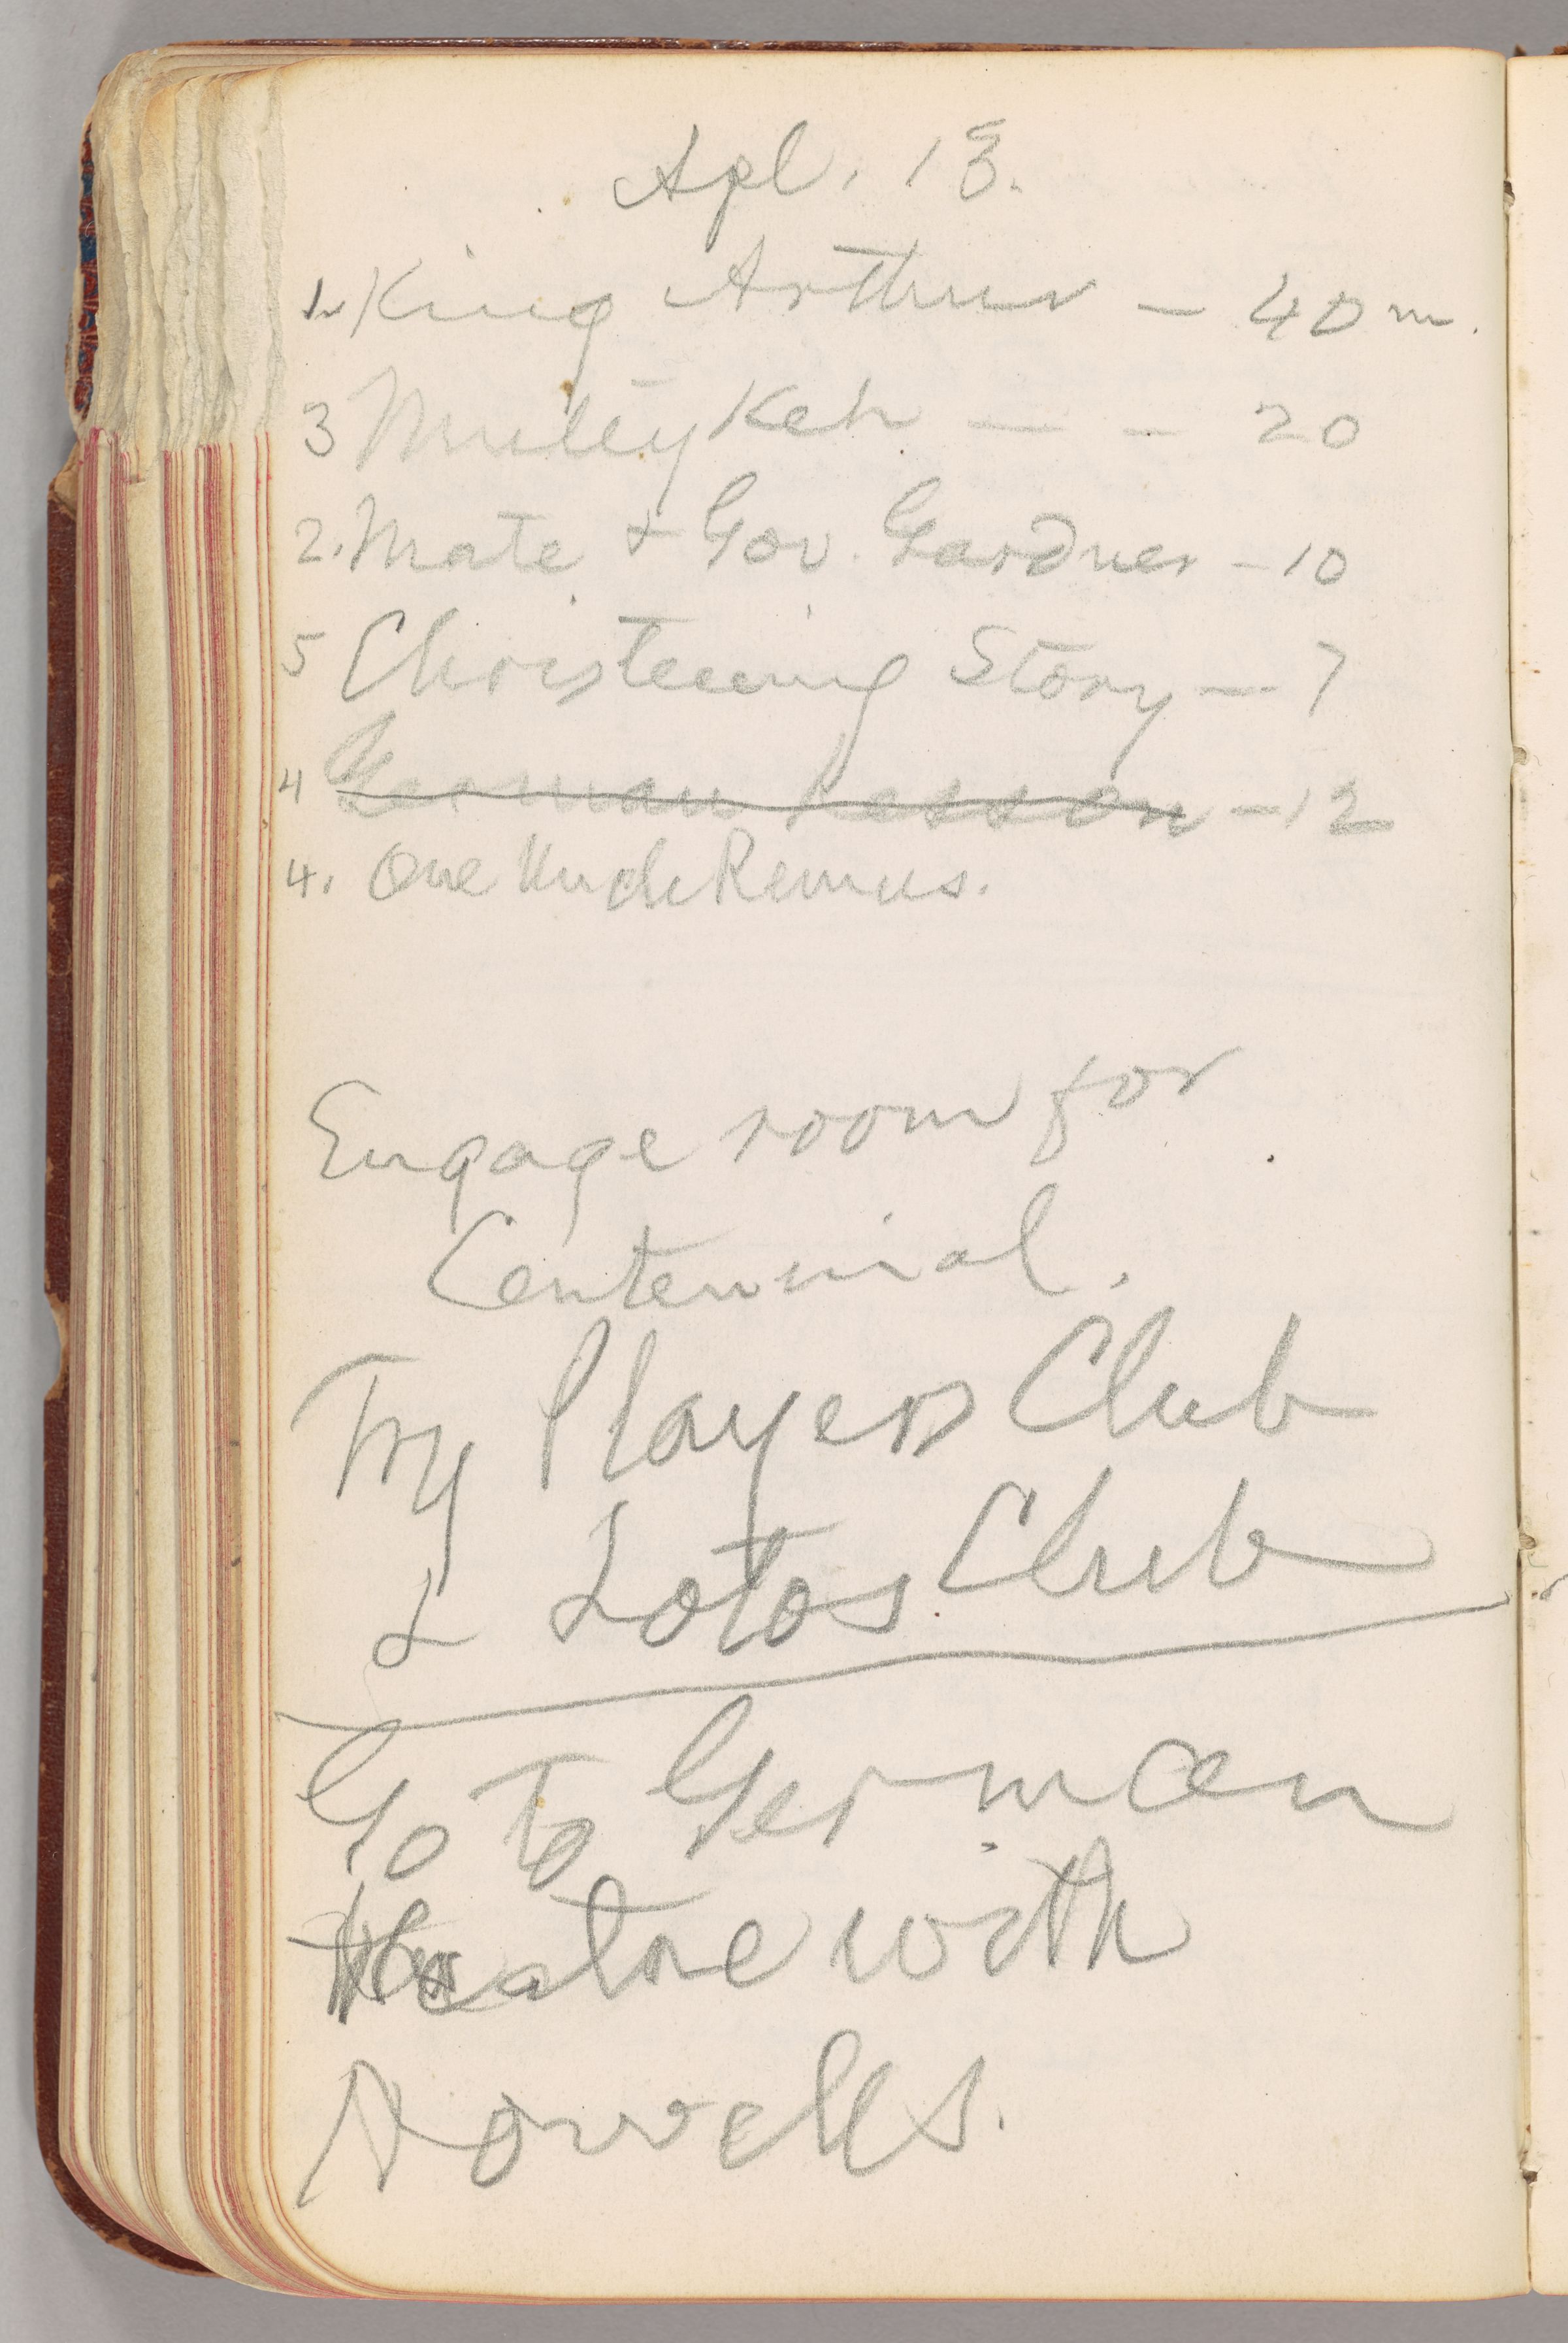 Apl. 13.
1. King Arthur — 40 m.
3 Muley Keh — — 20
2. Mate & Gov. Gardner — 10
5 Christening Story — 7
4 German Lesson — 12
4. One Uncle Remus.
Engage room for
Centennial.
Try Players Club
& Lotos Club
Go to German
theatre with
Howells.